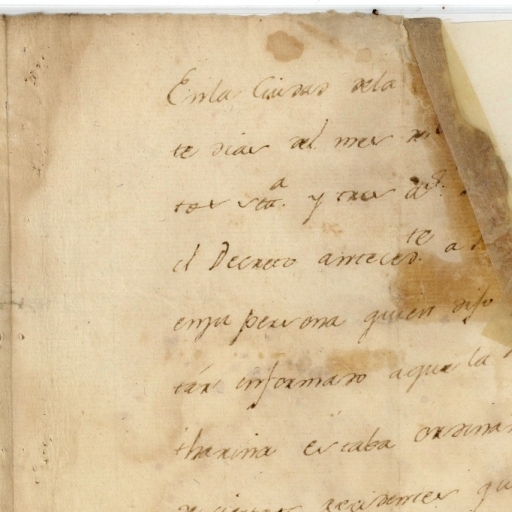 En la Ciudad dela
te dias del mes de
tos sta. y tres as.
el Decreto anteced.te a
en su persona quien dijo
tár informado aque la
tharina estaba ordinar
accidentes qu